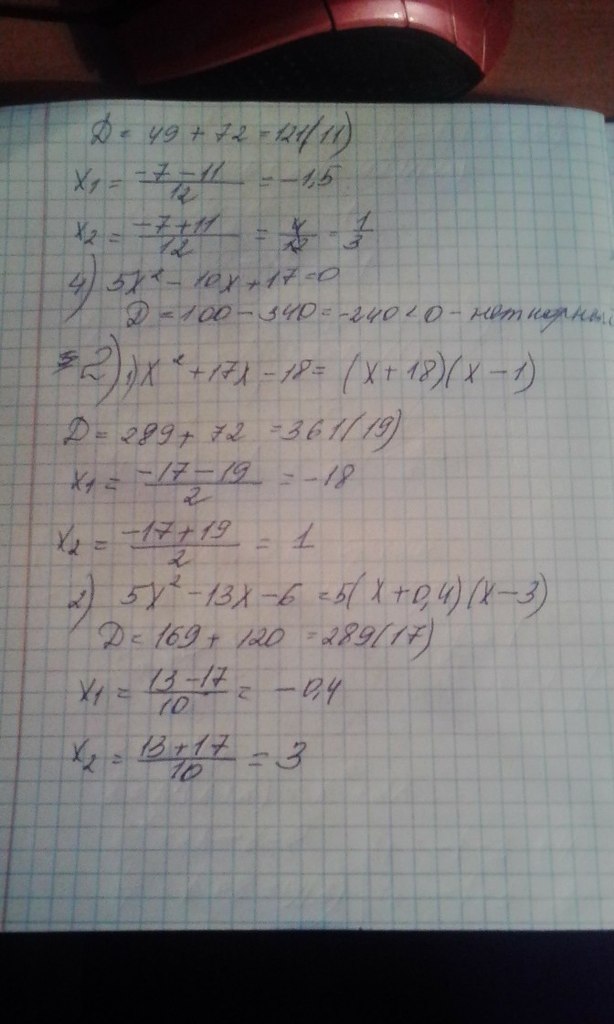 D = 49 + 72 = 121(11)
x₁ = (-7-11)/12 = -1,5
x₂ = (-7+11)/12 = 4/12 = 1/3
4) 5x² - 10x + 17 = 0
D = 100 - 340 = -240 < 0 - нет корней
2) 1) x² + 17x - 18 = (x + 18)(x - 1)
D = 289 + 72 = 361(19)
x₁ = (-17-19)/2 = -18
x₂ = (-17+19)/2 = 1
2) 5x² - 13x - 6 = 5(x + 0,4)(x - 3)
D = 169 + 120 = 289(17)
x₁ = (13-17)/10 = -0,4
x₂ = (13+17)/10 = 3